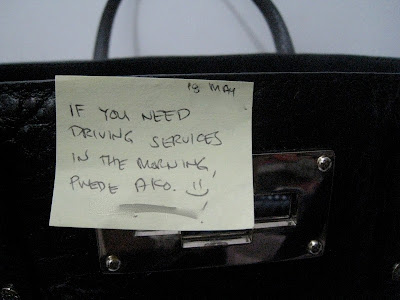 18 MAY
IF YOU NEED
DRIVING SERVICES
IN THE MORNING,
PUEDE AKO.